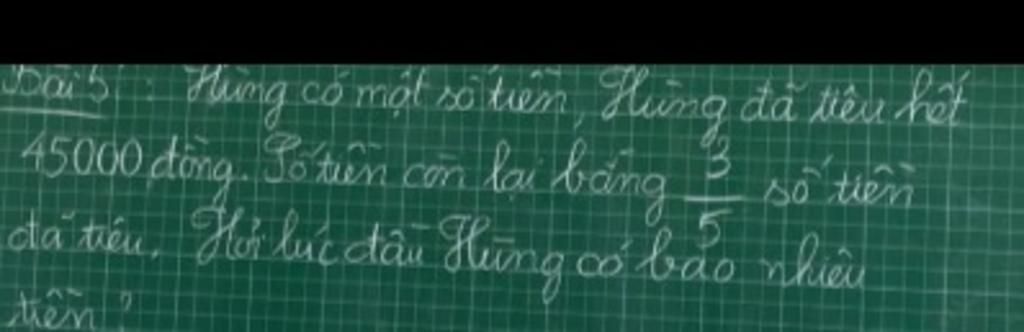 Bài 5: Hùng có một số tiền, Hùng đã tiêu hết
45000 đồng. Số tiền còn lại bằng 3/5 số tiền
đã tiêu. Hỏi lúc đầu Hùng có bao nhiêu
tiền?